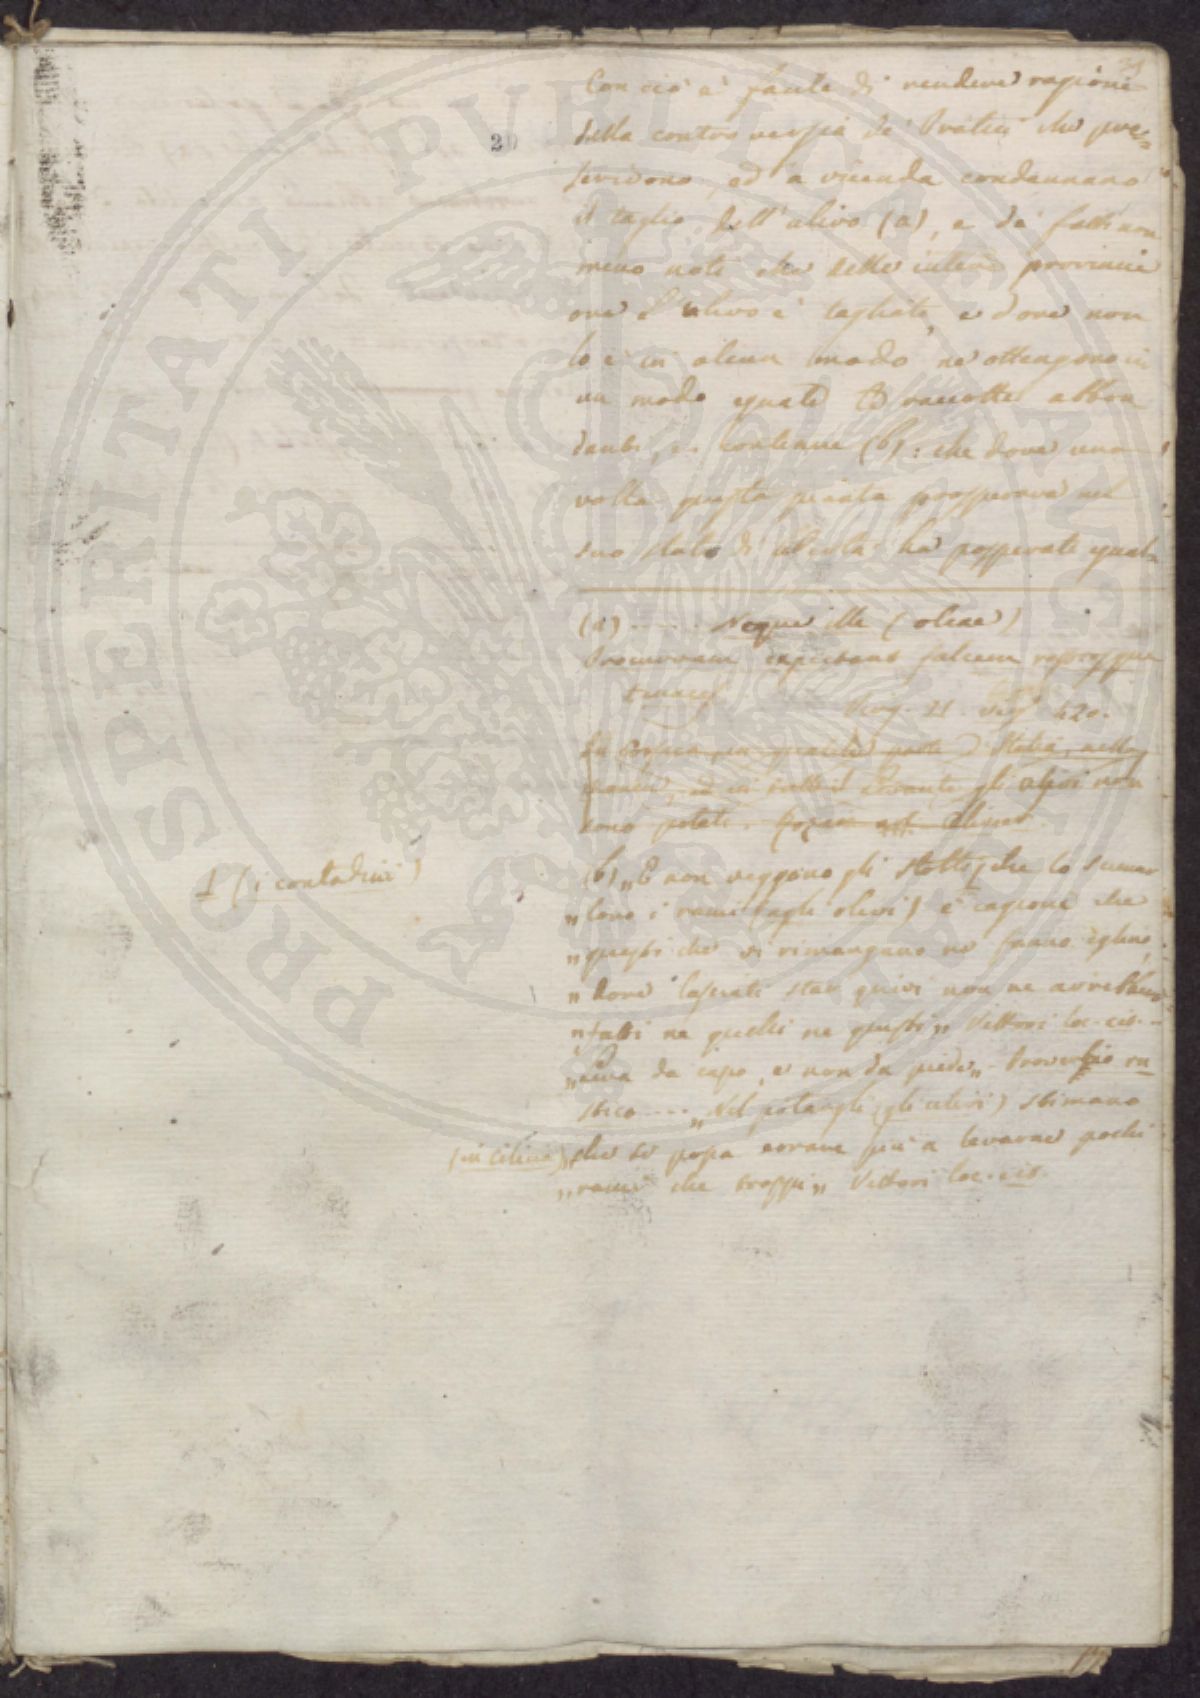 21
20
Con ciò è facile di rendere ragione
della controversia de' Pratici che pre=
scrivono, ed a vicenda condannano
il taglio dell'ulivo (a), e de' fatti non
meno noti che delle intere provincie
ove l'ulivo è tagliato, e dove non
lo è in alcun modo ne ottengono in
un modo eguale raccolte abbon
danti, e continue (b): che dove una
volta questa pianta prosperava nel
suo stato di ha prosperato egual=
(a) ..... Neque illae (oleae)
Procurvam expectant falcem rastrosque
tenaces Virg. 420.
In Corsica, in qualche parte d'Italia, nella
ed in tutto il Levante gli ulivi non
sono potati.
1 (i contadini)
(b) „E non veggono gli stolti che lo scemar
„loro i rami (agli olivi) è cagione che
„questi che vi rimangano ne fanno
„dove lasciati star quivi non ne avrebbeno
„fatti ne quelli ne questi„ Vettori loc. cit.
da capo, e non da piede„ Proverbio ru
stico .... „Nel potargli (gli ulivi) stimano
che si possa errare più a levarne pochi
„rami che troppi„ Vettori loc. cit.